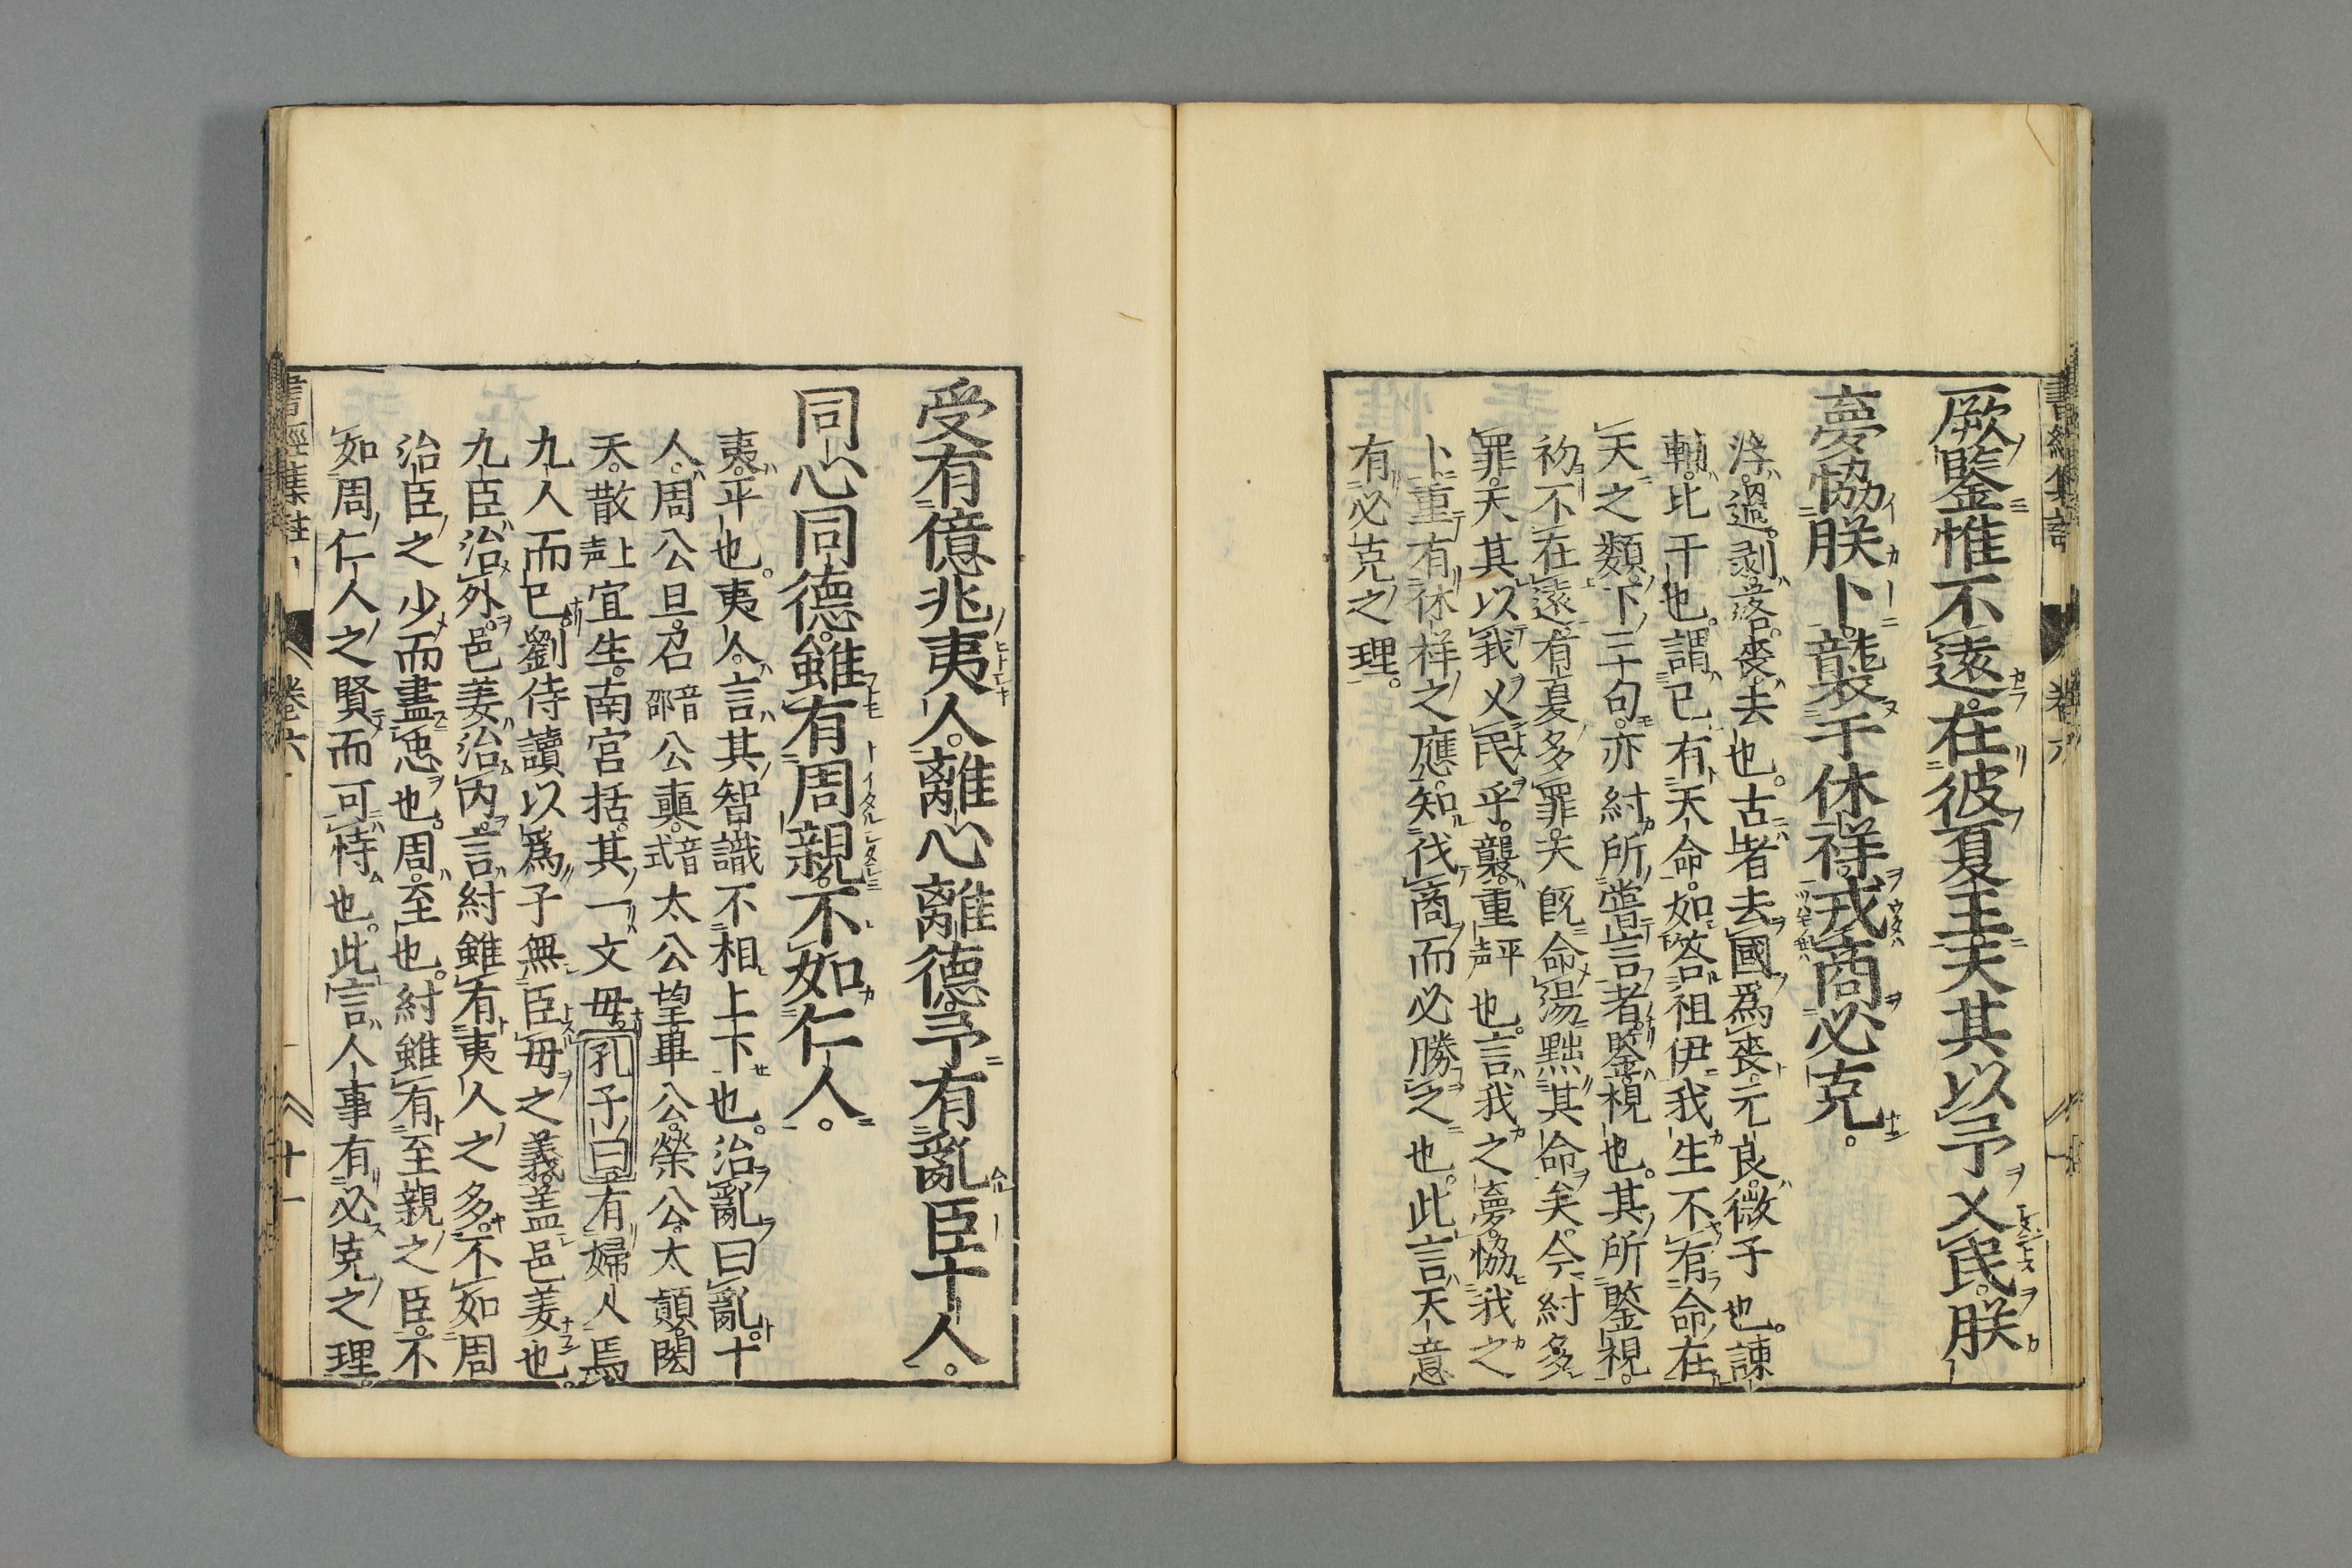 厥鑒惟不遠。在彼夏王。天其以予乂民。朕
夢協朕卜。襲于休祥。戎商必克。
浮。過。剥。落。喪。去也。古者去國爲喪。元良。微子也。諫
輔。比干也。謂。己有天命。如答祖伊我生不有命在
天之類。下三句。亦紂所甞言者。鑒。視也。其所鑒視。
初不在遠。有夏多罪。天既命湯黜其命矣。今紂多
罪。天其以我乂民乎。襲。重平声也。言我之夢。協我之
卜。重有休祥之應。知伐商而必勝之也。此言天意
有必克之理。
受有億兆夷人。離心離德。予有亂臣十人。
同心同德。雖有周親。不如仁人。
夷。平也。夷人。言其智識不相上下也。治亂曰亂。十
人。周公旦。召音邵公奭。音式太公望。畢公。榮公。太顛。閎
天。散上声宜生。南宮括。其一文毋。孔子曰有婦人焉
九人而已。劉侍讀以爲子無臣毋之義。盖邑姜也。
九臣治外。邑姜治内。言紂雖有夷人之多。不如周
治臣之少而盡忠也。周。至也。紂雖有至親之臣。不
如周仁人之賢而可恃也。此言人事有必克之理。
書經集註
卷六
十一